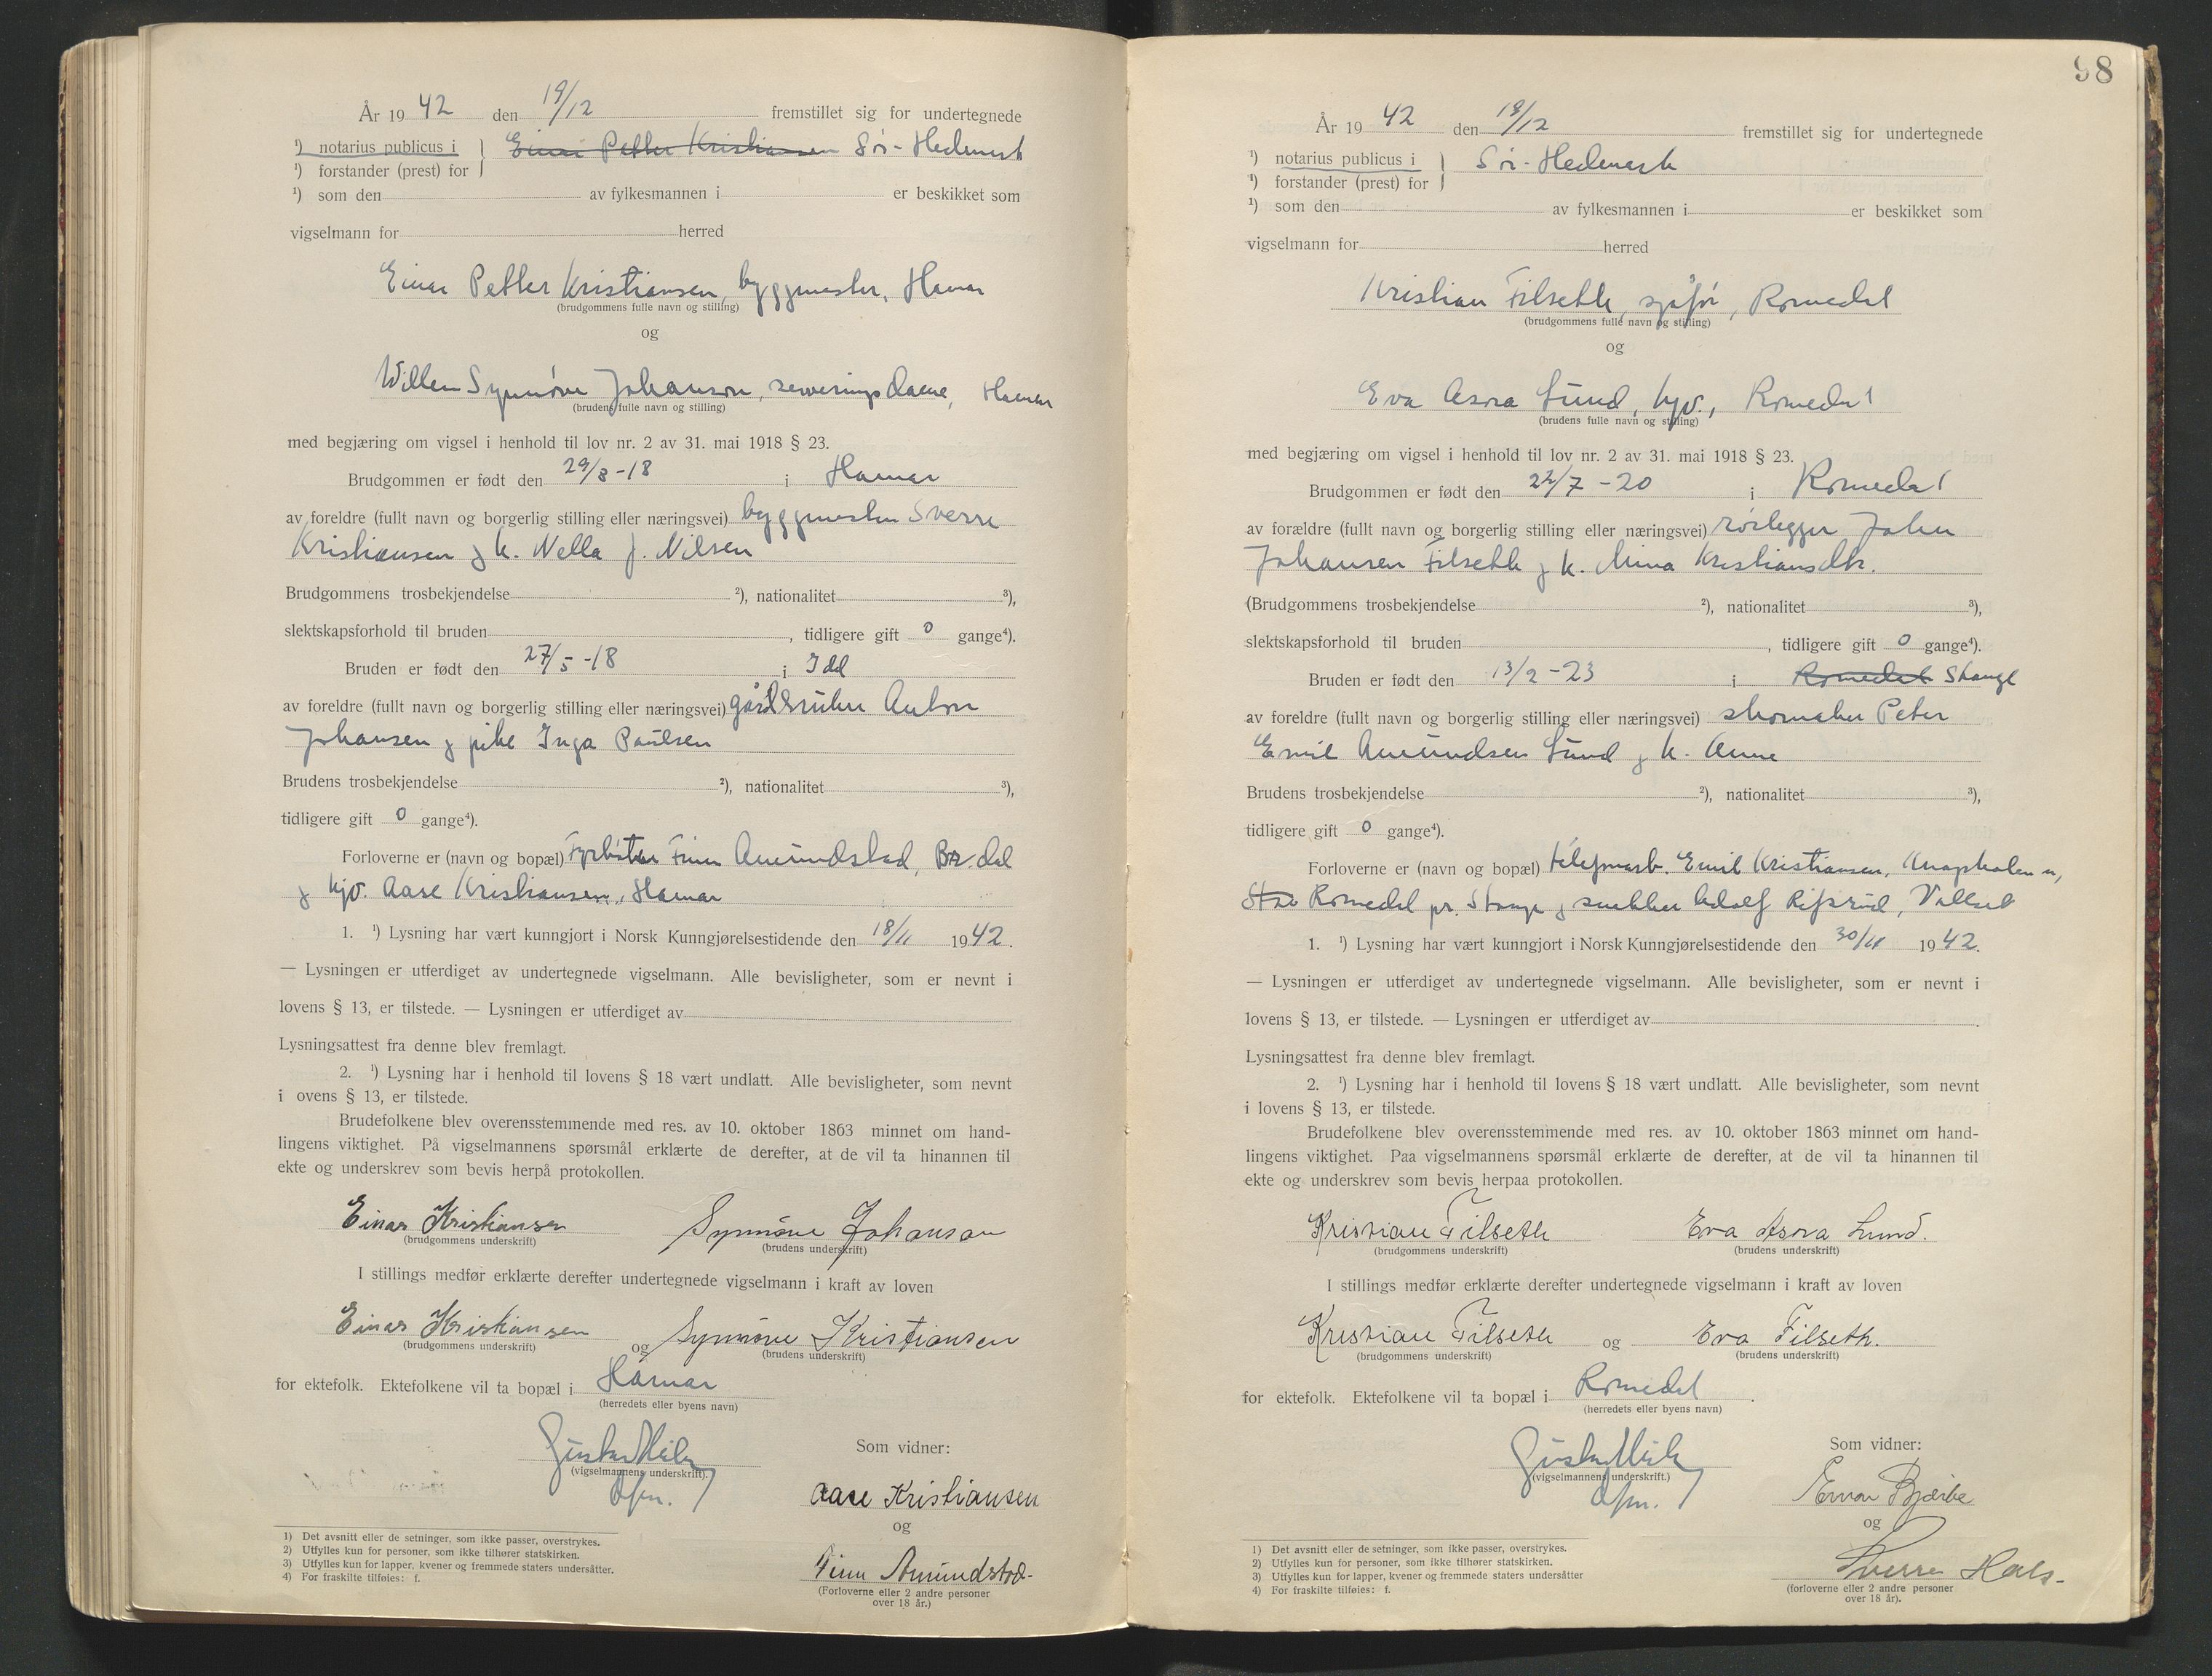 År 1942 den 19/12 fremstillet sig for undertegnede
¹) notarius publicus i } Einar Petter Kristiansen Sør-Hedmark
¹) forstander (prest) for
¹) som den av fylkesmannen i er beskikket som
vigselmann for herred
Einar Petter Kristiansen, byggmester, Hamar
(brudgommens fulle navn og stilling)
og
Synnøve Johanson, serveringsdame, Hamar
(brudens fulle navn og stilling)
med begjæring om vigsel i henhold til lov nr. 2 av 31. mai 1918 § 23.
Brudgommen er født den 29/8-18 i Hamar
av foreldre (fullt navn og borgerlig stilling eller næringsvei) byggmester Sverre
Kristiansen og h. Nella J. Nilsen
Brudgommens trosbekjendelse ²), nationalitet ³),
slektskapsforhold til bruden , tidligere gift 0 gange⁴).
Bruden er født den 27/5-18 i Idd
av foreldre (fullt navn og borgerlig stilling eller næringsvei) gårdbruker Anton
Johansen og pike Inga Paulsen
Brudens trosbekjendelse ²), nationalitet ³),
tidligere gift 0 gange⁴).
Forloverne er (navn og bopæl) Finn Amundstad, Br.dal
og hjv. Aase Kristiansen, Hamar
1. ¹) Lysning har vært kunngjort i Norsk Kunngjørelsestidende den 18/11 1942.
— Lysningen er utferdiget av undertegnede vigselmann. Alle bevisligheter, som er nevnt i
lovens § 13, er tilstede. — Lysningen er utferdiget av
Lysningsattest fra denne blev fremlagt.
2. ¹) Lysning har i henhold til lovens § 18 vært undlatt. Alle bevisligheter, som nevnt
i ovens § 13, er tilstede.
Brudefolkene blev overensstemmende med res. av 10. oktober 1863 minnet om hand-
lingens viktighet. På vigselmannens spørsmål erklærte de derefter, at de vil ta hinannen til
ekte og underskrev som bevis herpå protokollen.
Einar Kristiansen Synnöve Johanson
(brudgommens underskrift) (brudens underskrift)
I stillings medfør erklærte derefter undertegnede vigselmann i kraft av loven
Einar Kristiansen og Synnöve Kristiansen
(brudgommens underskrift) (brudens underskrift)
for ektefolk. Ektefolkene vil ta bopæl i Hamar
(herredets eller byens navn)
(vigselmannens underskrift).
Som vidner:
Aase Kristiansen
og
Finn Amundstad
(Forloverne eller 2 andre personer
over 18 år.)
1) Det avsnitt eller de setninger, som ikke passer, overstrykes.
2) Utfylles kun for personer, som ikke tilhører statskirken.
3) Utfylles kun for lapper, kvener og fremmede staters undersåtter.
4) For fraskilte tilføies: f.
98
År 1942 den 19/12 fremstillet sig for undertegnede
¹) notarius publicus i } Sør-Hedmark
¹) forstander (prest) for
¹) som den av fylkesmannen i er beskikket som
vigselmann for herred
Kristian Filseth, sjåfør, Romedal
(brudgommens fulle navn og stilling)
og
Eva Asora Lund, hjv., Romedal
(brudens fulle navn og stilling)
med begjæring om vigsel i henhold til lov nr. 2 av 31. mai 1918 § 23.
Brudgommen er født den 22/7-20 i Romedal
av forældre (fullt navn og borgerlig stilling eller næringsvei) rørlegger Johan
Johansen Filseth og h. Mina Kristiansdtr.
(Brudgommens trosbekjendelse ²), nationalitet ³),
slektskapsforhold til bruden , tidligere gift 0 gange⁴).
Bruden er født den 13/2-23 i Romedal Stange
av foreldre (fullt navn og borgerlig stilling eller næringsvei) skomaker Peter
Emil Amundsen Lund og h. Anne
Brudens trosbekjendelse ²), nationalitet ³),
tidligere gift 0 gange⁴).
Forloverne er (navn og bopæl) telefonarb. Emil Kristiansen,
Romedal pr. Stange og snekker Adolf Rifsrud, Vallset
1. ¹) Lysning har vært kunngjort i Norsk Kunngjørelsestidende den 30/11 1942.
— Lysningen er utferdiget av undertegnede vigselmann. Alle bevisligheter, som er nevnt i
lovens § 13, er tilstede. — Lysningen er utferdiget av
Lysningsattest fra denne blev fremlagt.
2. ¹) Lysning har i henhold til lovens § 18 vært undlatt. Alle bevisligheter, som nevnt
i lovens § 13, er tilstede.
Brudefolkene blev overensstemmende med res. av 10. oktober 1863 minnet om hand-
lingens viktighet. Paa vigselmannens spørsmål erklærte de derefter, at de vil ta hinannen til
ekte og underskrev som bevis herpaa protokollen.
Kristian Filseth Eva Asora Lund.
(brudgommens underskrift) (brudens underskrift)
I stillings medfør erklærte derefter undertegnede vigselmann i kraft av loven
Kristian Filseth og Eva Filseth.
(brudgommens underskrift) (brudens underskrift)
for ektefolk. Ektefolkene vil ta bopæl i Romedal.
(herredets eller byens navn)
(vigselmannens underskrift.)
Som vidner:
og
Sverre Hals-
(forloverne eller 2 andre personer
over 18 år).
1) Det avsnitt eller de setninger, som ikke passer, overstrykes.
2) Utfylles kun for personer, som ikke tilhører statskirken.
3) Utfylles kun for lapper, kvener og fremmede staters undersåtter
4) For fraskilte tilføies: f.